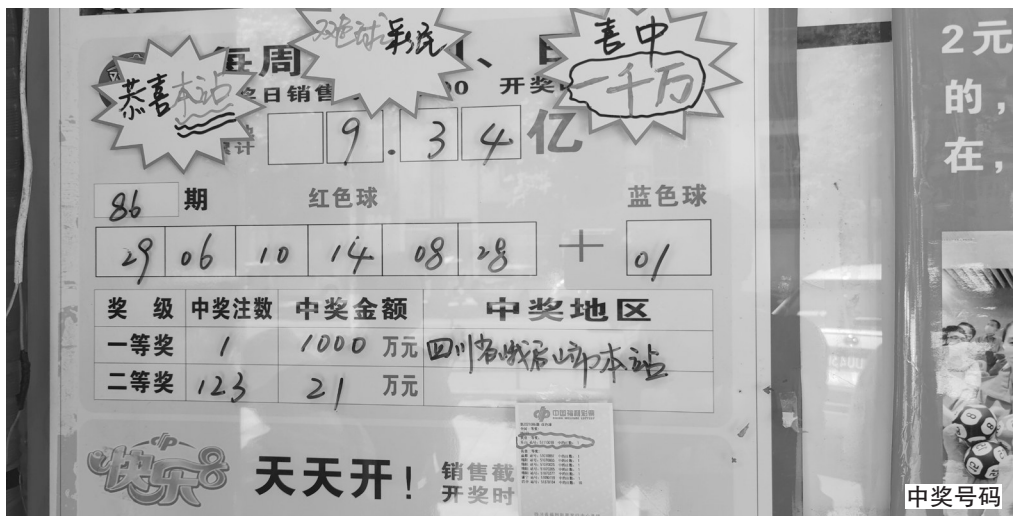 恭喜本站
双色球彩民
喜中
一千万
每周
日销售
开奖
9.34亿
86期
红色球
蓝色球
29 06 10 14 08 28 + 01
奖级 中奖注数 中奖金额 中奖地区
一等奖 1 1000万元 四川省峨眉山市本站
二等奖 123 21万元
快乐8
天天开!
销售截
开奖时
中国福利彩票
2元
的,
在,
中奖号码